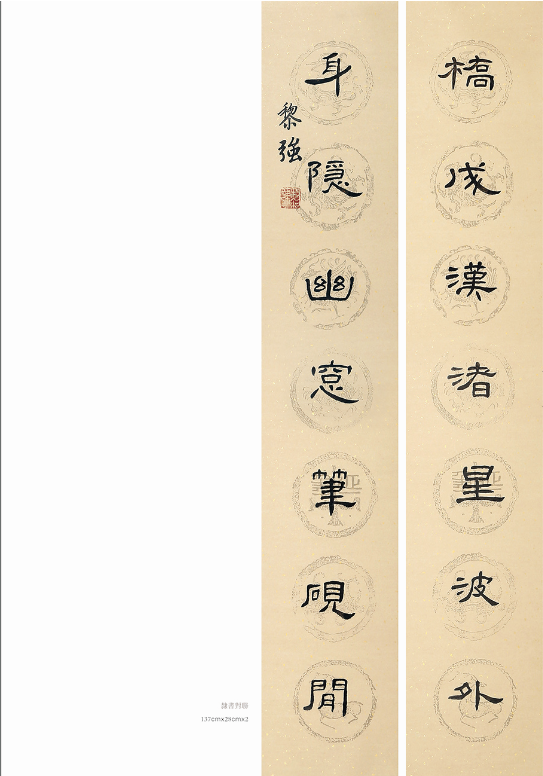 橋成漢渚星波外
身隐幽窓筆硯閒
黎強
隸書對聯
137cm×28cm×2